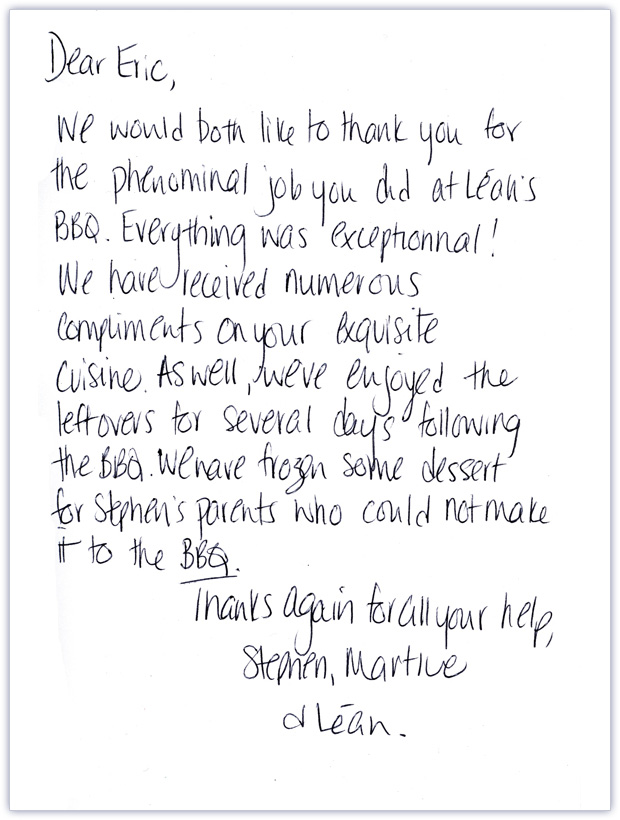 Dear Eric,
We would both like to thank you for
the phenominal job you did at Léan's
BBQ. Everything was exceptionnal!
We have received numerous
compliments on your exquisite
cuisine. As well, we've enjoyed the
leftovers for several days following
the BBQ. We have frozen some dessert
for Stephen's parents who could not make
it to the BBQ.
Thanks again for all your help,
Stephen, Martine
& Léan.